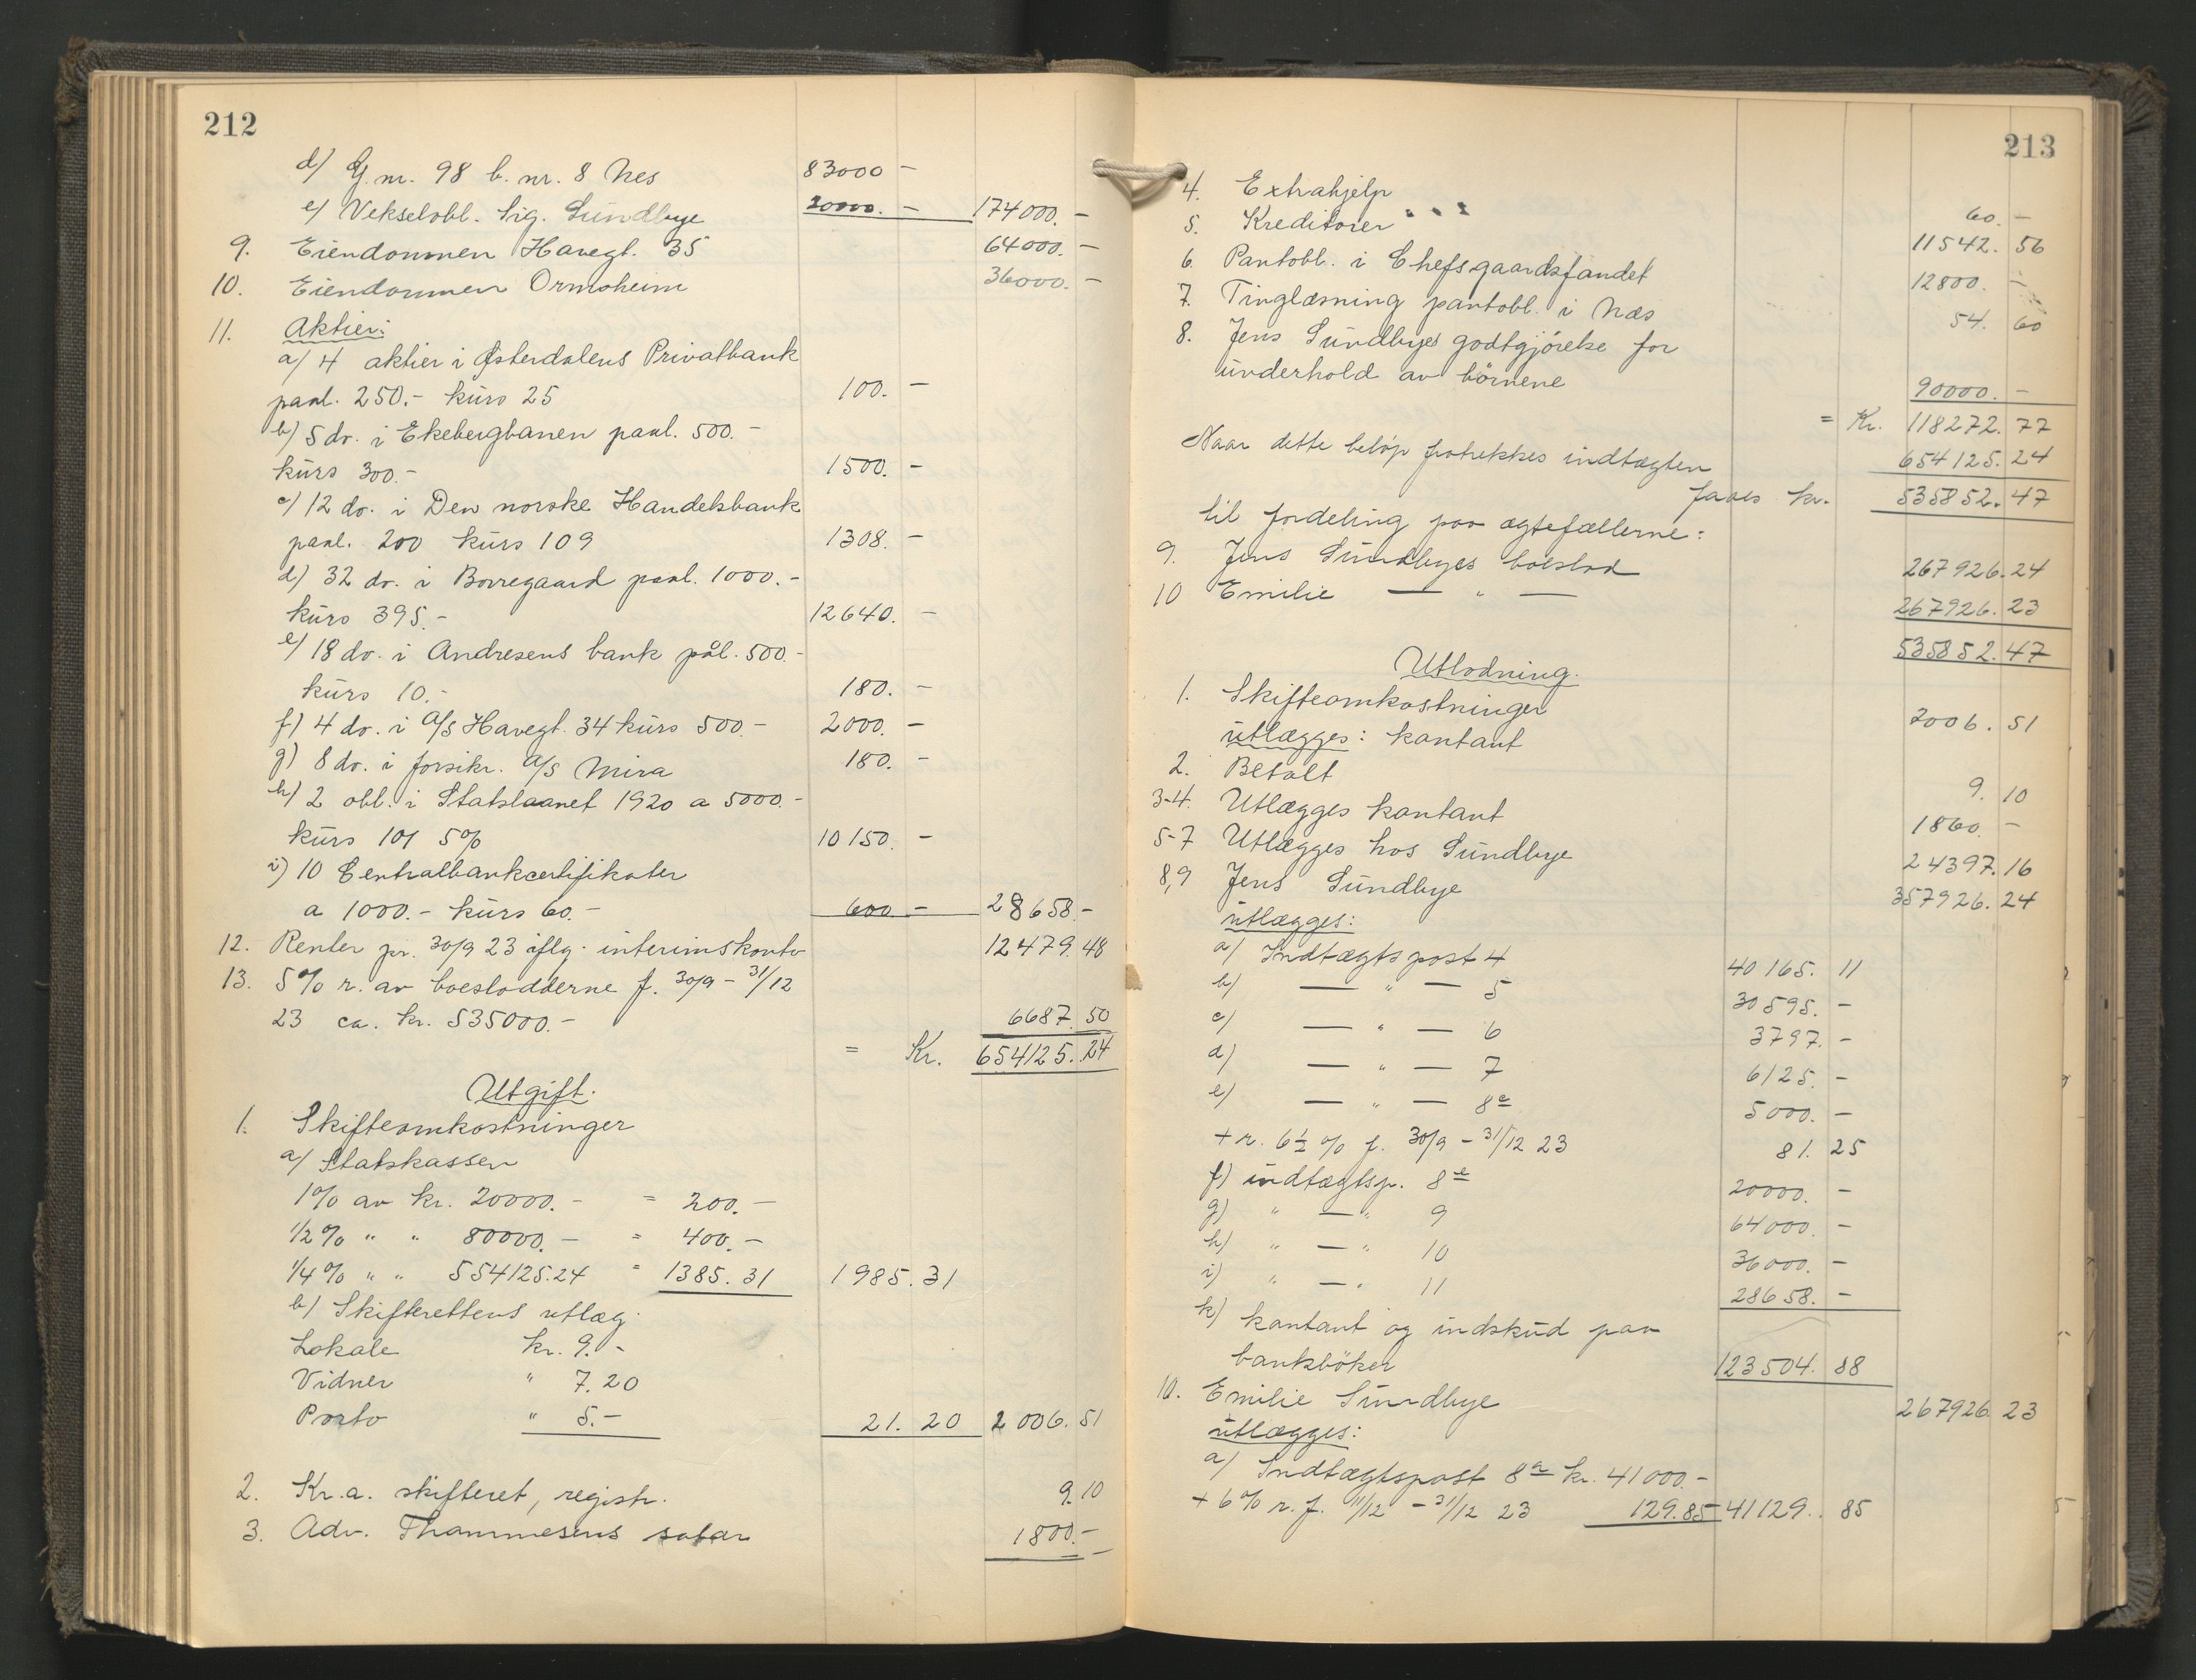 212
d) G. nr. 98 b. nr. 8 Nes 83000 -
e) Vekselobl. Sig. Sundbye 20000. - 174000. -
9. Eiendommen Havegt. 35 64000. -
10. Eiendommen Ormsheim 36000. -
11. Aktier:
a) 4 aktier i Østerdalens Privatbank
paal. 250.- kurs 25 100. -
b) 5 do. i Ekebergbanen paal. 500.-
kurs 300.- 1500. -
c) 12 do. i Den norske Handelsbank
paal. 200 kurs 109 1308. -
d) 32 do. i Borregaard paal. 1000.-
kurs 395.- 12640. -
e) 18 do. i Andresens bank pål. 500.-
kurs 10.- 180. -
f) 4 do. i A/S Havegt. 34 kurs 500.- 2000. -
g) 8 do. i forsikr. A/S Mira 180. -
h) 2 obl. i Statslaanet 1920 a 5000.-
kurs 101 5% 10150. -
i) 10 Centralbankcertifikater
a 1000.- kurs 60.- 600 - 28658.-
12. Renter pr. 30/9 23 iflg. interimskonto 12479.48
13. 5% r. av boeslodderne f. 30/9 - 31/12
23 ca. kr. 535000.- 6687.50
= Kr. 654125.24
Utgift.
1. Skifteomkostninger
a) Statskassen
1% av kr. 20000.- = 200.-
1/2% " " 80000.- = 400.-
1/4% " " 554125.24 = 1385.31 1985.31
b) Skifterettens utlæg.
Lokale kr. 9.-
Vidner " 7.20
Porto " 5.- 21.20 2006.51
2. Kr.a. skifteret, registr. 9.10
3. Adv. Thommesens salær 1800.-
213
4. Extrahjelp 60. -
5. Kreditorer 11542.56
6. Pantobl. i Chefsgaardsfandet 12800. -
7. Tinglæsning pantobl. i Næs 54.60
8. Jens Sundbyes godtgjørelse for
underhold av børnene 90000. -
= Kr. 118272.77
Naar dette beløp fratrekkes indtægten 654125.24
faaes kr. 535852.47
til fordeling paa ægtefællerne:
9. Jens Sundbyes boeslod 267926.24
10 Emilie — " — 267926.23
535852.47
Utlodning.
1. Skifteomkostninger 2006.51
utlægges: kontant
2. Betalt 9.10
3-4. Utlægges kontant 1860. -
5-7 Utlægges hos Sundbye 24397.16
8,9 Jens Sundbye 357926.24
utlægges:
a) Indtægtspost 4 40165.11
b) — " — 5 30595. -
c) — " — 6 3797. -
d) — " — 7 6125. -
e) — " — 8c 5000. -
+ r. 6 1/2 % f. 30/9 - 31/12 23 81.25
f) indtægtsp. 8e 20000. -
g) " — " 9 64000. -
h) " — " 10 36000. -
i) " — " 11 28658. -
k) kontant og indskud paa
bankbøker 123504.88
10. Emilie Sundbye 267926.23
utlægges:
a) Indtægtspost 8a kr. 41000.-
+ 6% r. f. 11/12 - 31/12 23 129.85 41129.85